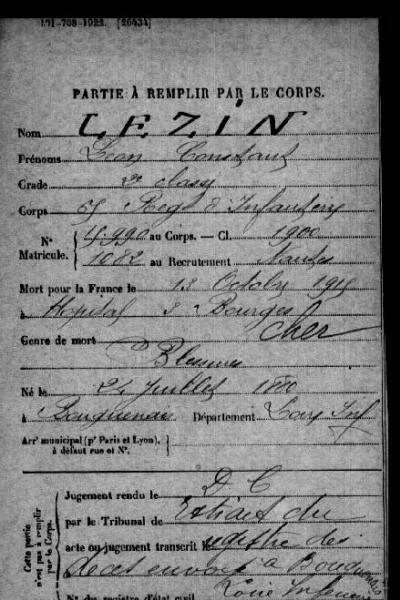 101-708-1922. [26434]
PARTIE À REMPLIR PAR LE CORPS.
Nom LEZIN
Prénoms Léon Constant
Grade 2e classe
Corps Regt d'Infanterie
Nº Matricule. { 4990 au Corps. — Cl. 1900
1082 au Recrutement Nantes
Mort pour la France le 13 Octobre 1914
à Hopital 3 Bourges
Cher
Genre de mort
Blessures
Né le 24 Juillet 1880
à Bouguenais Département Loire Inf
Arr' municipal (p' Paris et Lyon), à défaut rue et Nº.
Cette partie n'est pas à remplir par le Corps.
Jugement rendu le D C
par le Tribunal de Extrait du
acte ou jugement transcrit le registre des
décès envoyé à Bouguenais
Loire Inférieure
Nº du registre d'état civil